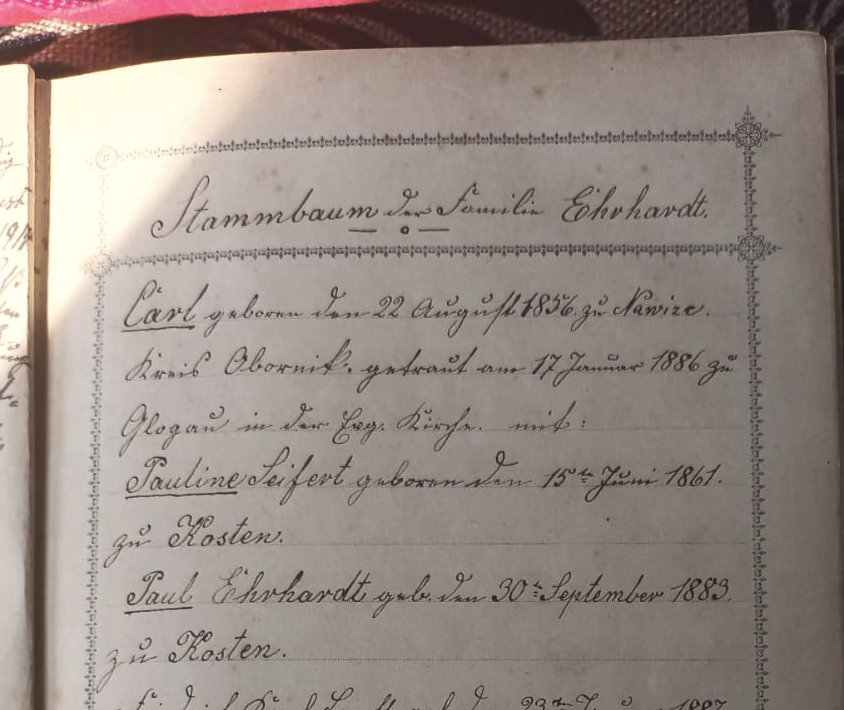 Stammbaum der Familie Ehrhardt.
Carl geboren den 22 August 1856. zu
Kreis Obornik. getraut am 17 Januar 1886 zu
Glogau in der Evg. Kirche. mit:
Pauline Seifert geboren den 15te Juni 1861.
zu Kosten.
Paul Ehrhardt geb. den 30te September 1883.
zu Kosten.